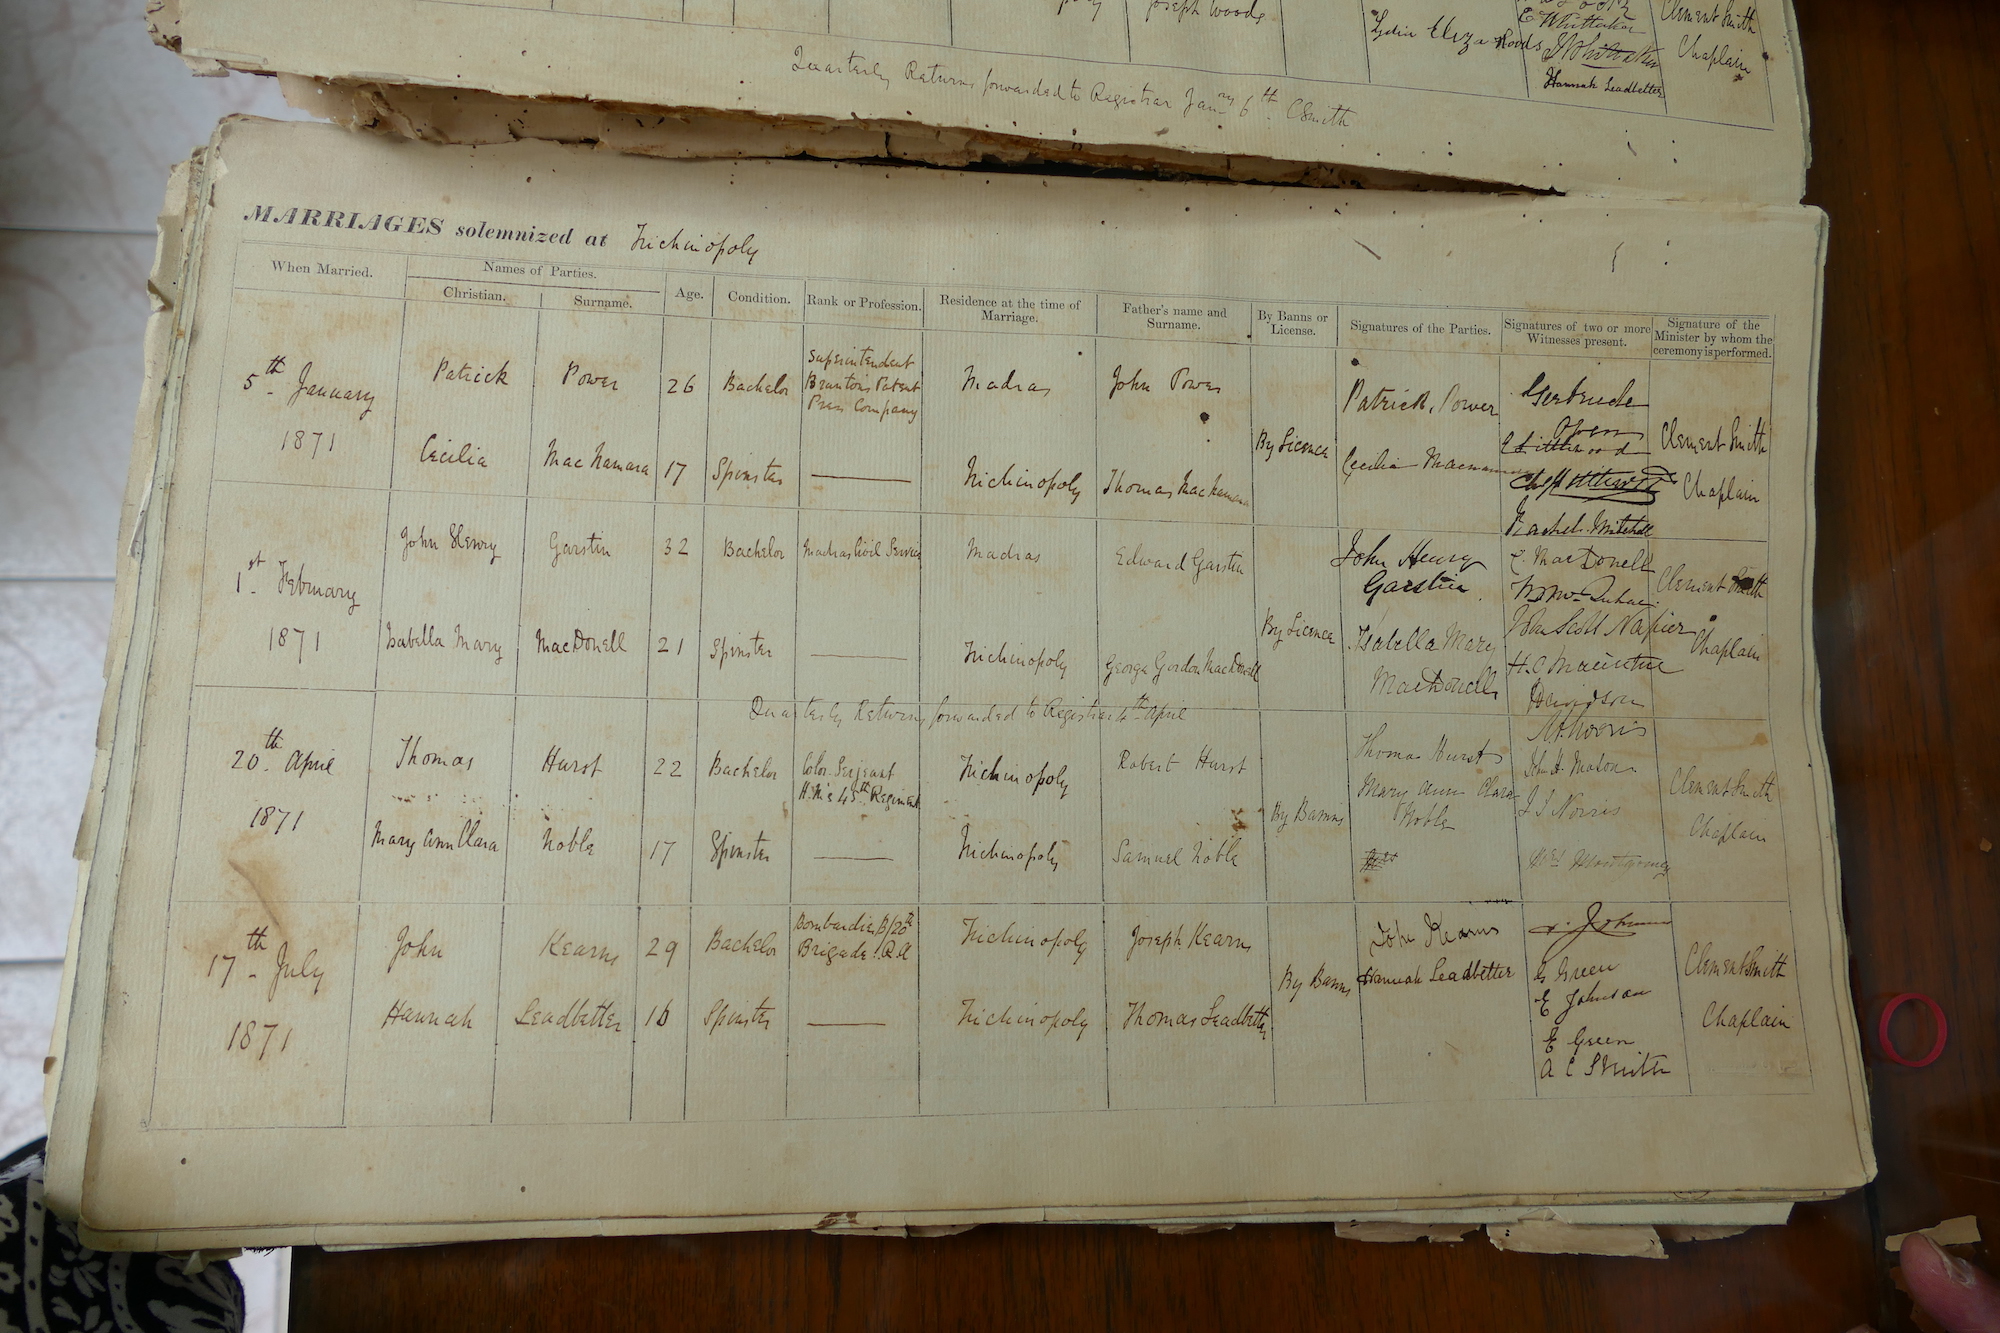 Joseph Woods
Lydia Eliza Woods
E Whittaker
Hannah Leadbetter
Clement Smith
Chaplain
Quarterly Returns forwarded to Registrar Jan ry 6th. CSmith
MARRIAGES solemnized at Trichinopoly
When Married.
Names of Parties.
Christian.
Surname.
Age.
Condition.
Rank or Profession.
Residence at the time of Marriage.
Father's name and Surname.
By Banns or License.
Signatures of the Parties.
Signatures of two or more Witnesses present.
Signature of the Minister by whom the ceremony is performed.
5th January
1871
Patrick
Power
26
Bachelor
Superintendent
Patent
Press Company
Madras
John Power
Cecilia
MacNamara
17
Spinster
Trichinopoly
Thomas MacNamara
By Licence
Patrick. Power
Cecilia
Gertrude
Rachel Mitchell
Clement Smith
Chaplain
1st February
1871
John Henry
Garstin
32
Bachelor
Madras Civil Service
Madras
Edward Garstin
Isabella Mary
MacDonell
21
Spinster
Trichinopoly
George Gordon MacDonell
By Licence
John Henry
Garstin.
Isabella Mary
MacDonell
MacDonell
John Scott Napier
H. C. Macintire
Davidson
Clement Smith
Chaplain
Quarterly Returns forwarded to Registrar 4th April
20th April
1871
Thomas
Hurst
22
Bachelor
Color Serjeant
H.M's 45th Regiment
Trichinopoly
Robert Hurst
Mary Ann Clara
Noble
17
Spinster
Trichinopoly
Samuel Noble
By Banns
Thomas Hurst
Mary Ann Clara
Noble
Norris
John H. Mason
J J Norris
Montgomery
Clement Smith
Chaplain
17th July
1871
John
Kearns
29
Bachelor
Bombardier B/20th
Brigade R.A
Trichinopoly
Joseph Kearns
Hannah
Leadbetter
16
Spinster
Trichinopoly
Thomas Leadbetter
By Banns
John Kearns
Hannah Leadbetter
Johnson
G Green
E Johnson
E Green
A C Smith
Clement Smith
Chaplain